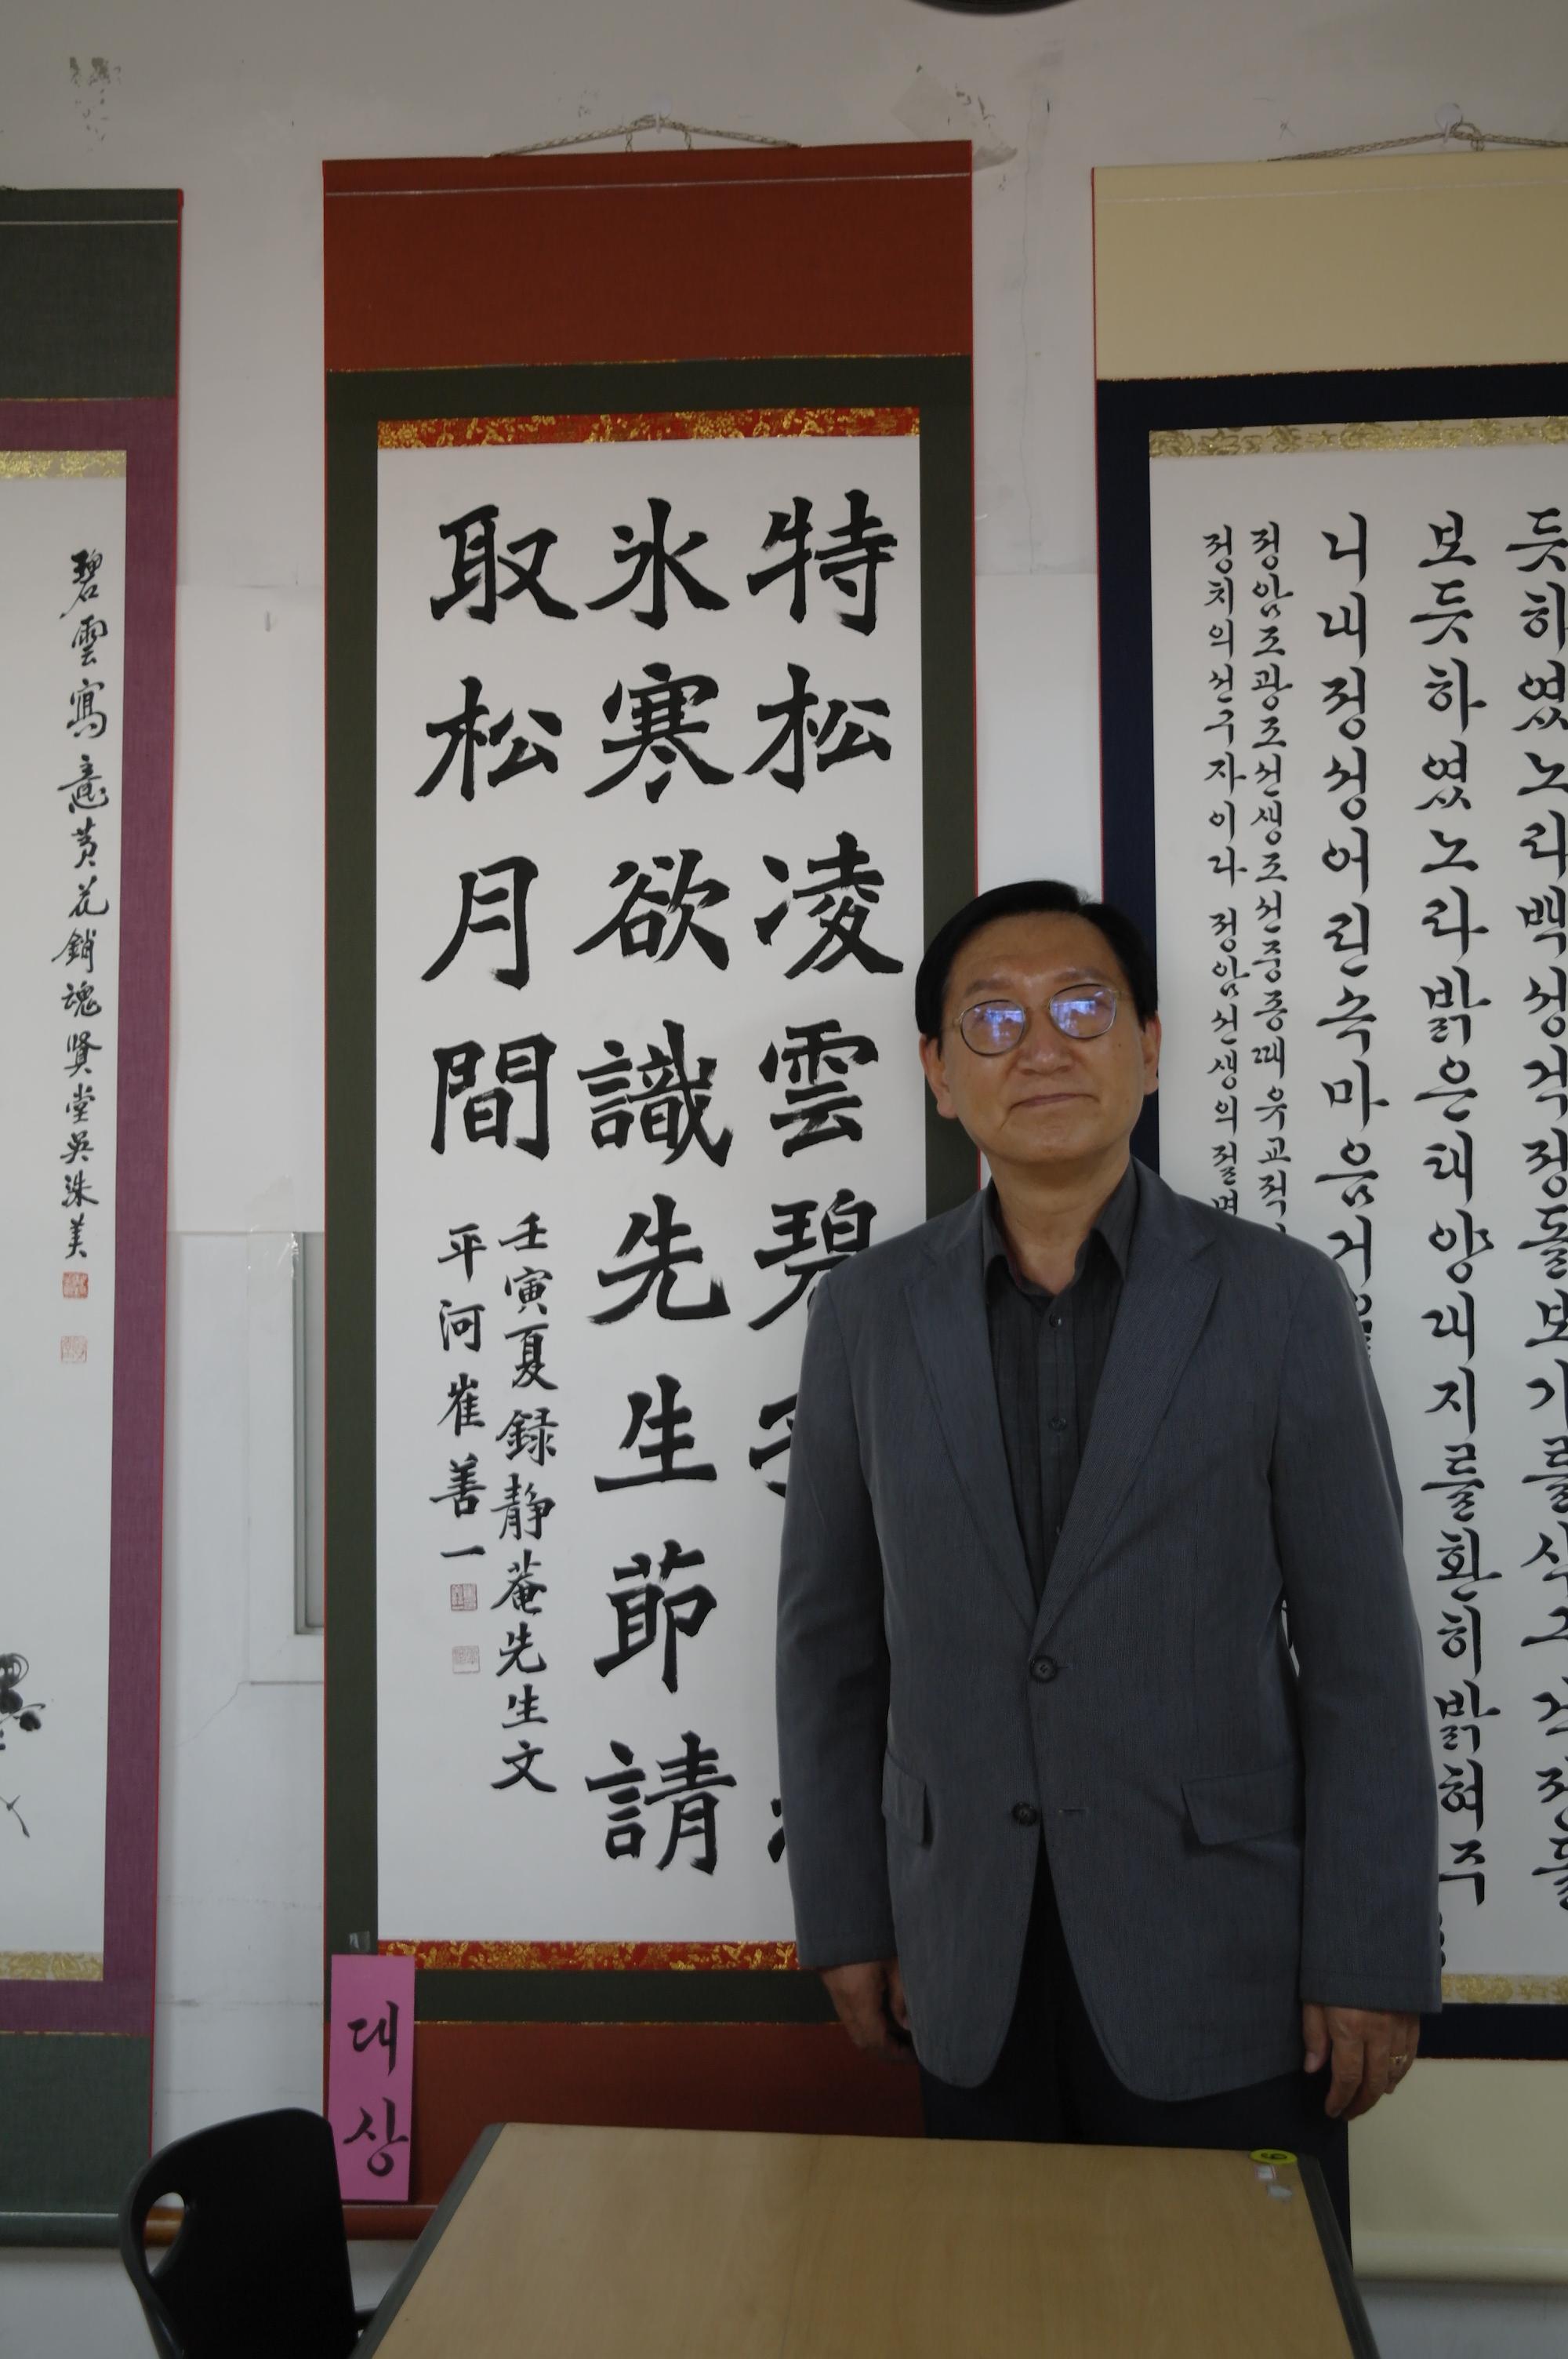 碧雲寫意黃花銷魂賢堂吳洙美
特松凌雲碧
氷寒欲識先生節請
取松月間
壬寅夏録靜菴先生文
平河崔善一
대상
듯히였노라백성걱정
보듯하였노라밝은태양대지를환히밝혀주
니내정성어린속마음거
정암조광조선생조선중종때유교적
정치의선구자이다 정암선생의절명